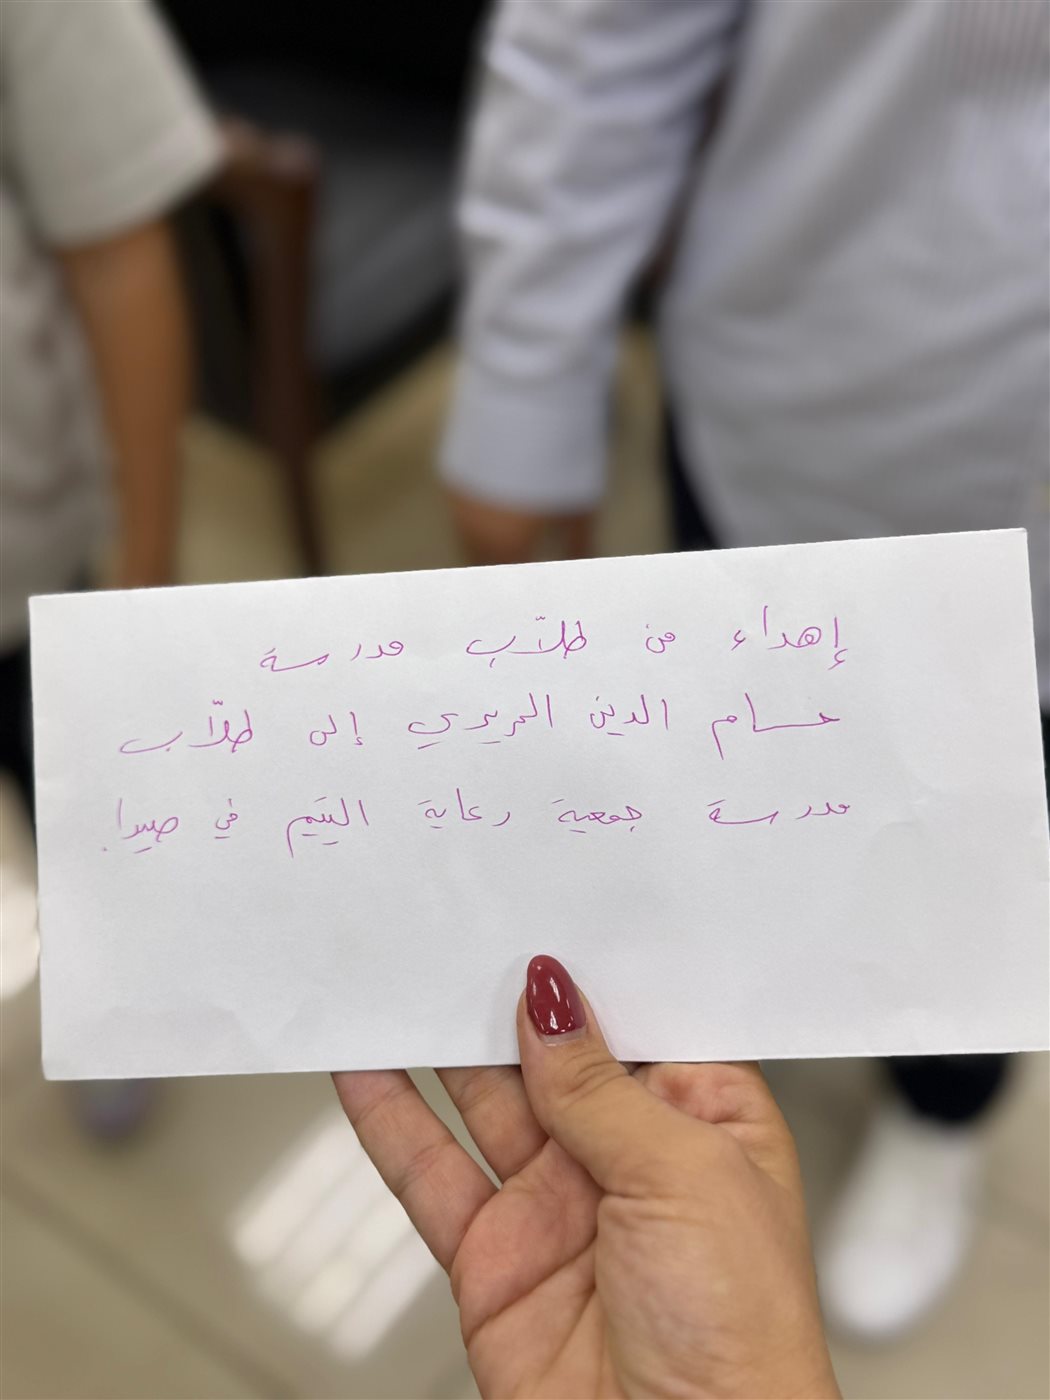 إهداء من طلّاب مدرسة
حسام الدين الحريري إلى طلّاب
مدرسة جمعية رعاية اليتيم في صيدا.